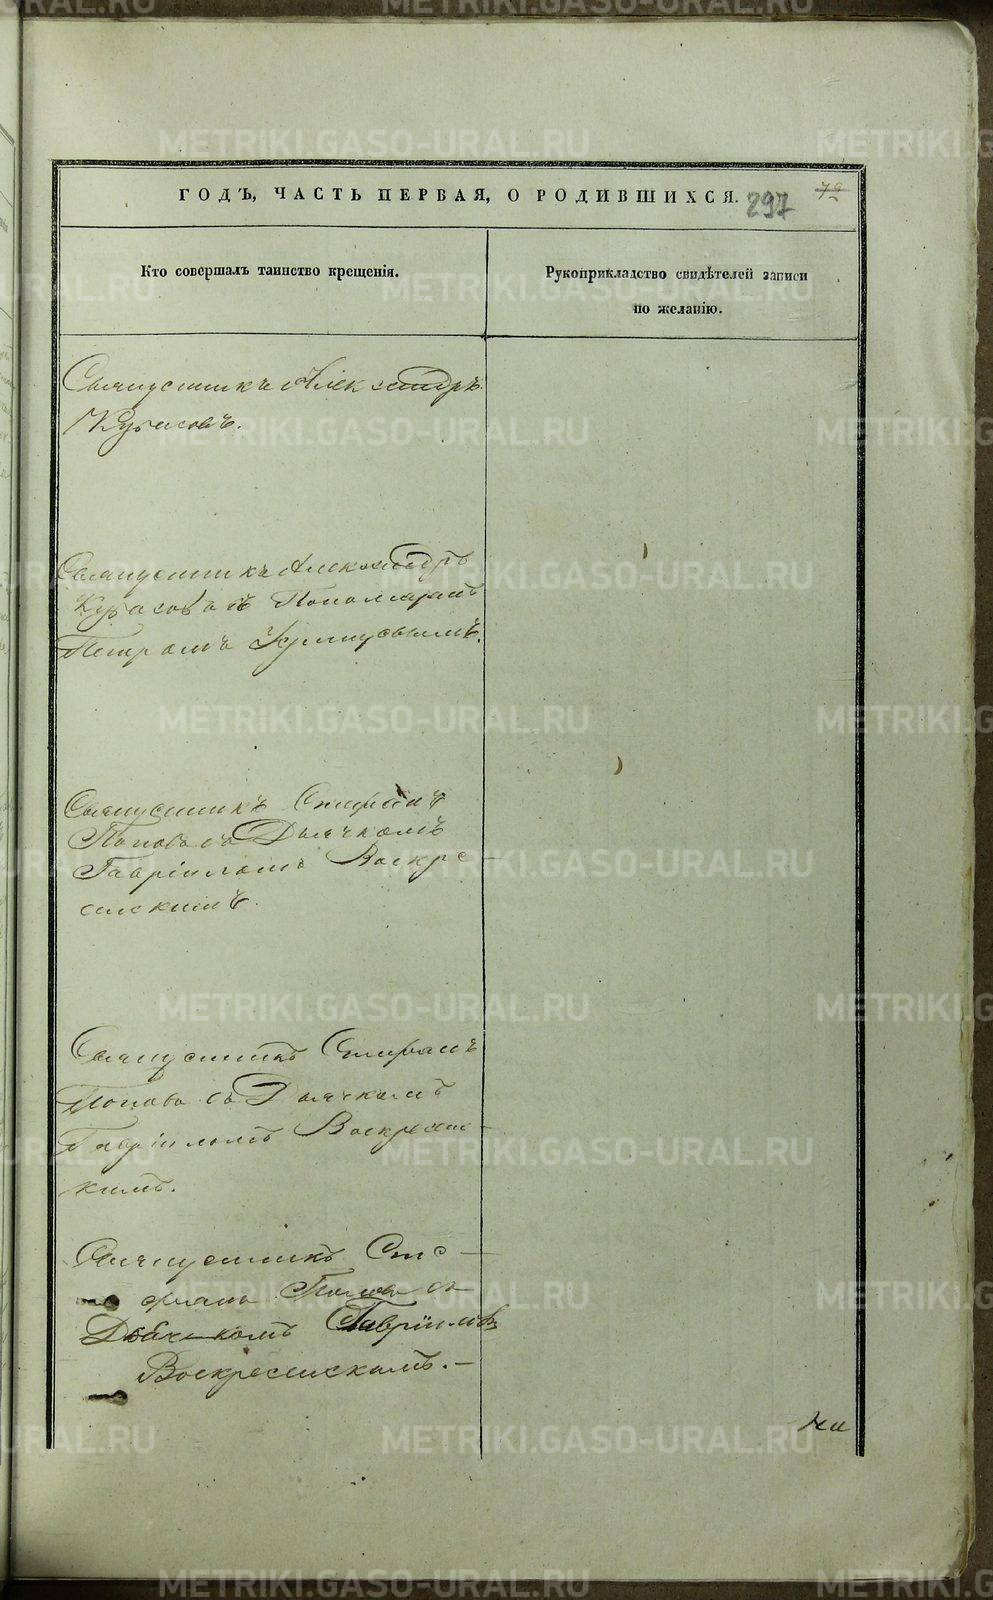 ГОДЪ, ЧАСТЬ ПЕРВАЯ, О РОДИВШИХСЯ.
297
Кто совершалъ таинство крещенія.
Рукоприкладство свидѣтелей записи
по желанію.
Священникъ Александръ
Кубасовъ.
Священникъ Александръ
Кубасовъ съ Пономаремъ
Петромъ
Священникъ Стефанъ
Поповъ съ Дьячкомъ
Гавріиломъ Воскре-
сенскимъ.
Священникъ Стефанъ
Поповъ съ Дьячкомъ
Гавріиломъ Воскресенс-
кимъ.
Священникъ Сте-
фанъ Поповъ съ
Дьячкомъ Гавріиломъ
Воскресенскимъ.-
METRIKI.GASO-URAL.RU